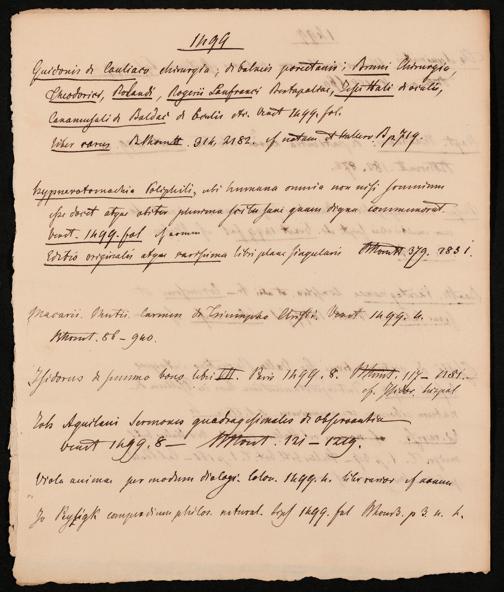 1499
Guidonis de Cauliaco chirurgia; de balneis porectanis; Bruni Chirurgia,
Theodorici, Rolandi, Rogerii Lanfranci Bertapaliae, Jesu Hali de oculis,
Canamusali de Baldac de Oculis etc. Venet 1499. fol.
liber rarus 314. 2182. cf notam p 719.
Hypnerotomachia Poliphili, ubi humana omnia non nisi somnium
esse docet atque obiter plurima scitu sane quam digna commemorat.
Venet. 1499. fol
Editio originalis atque rarissima libri plane singularis 379. 2831.
Macarii Mutii carmen de Triumpho Christi. Venet 1499. 4.
58 - 940.
Isidorus de summo bono libri III. Paris 1499. 8. 117 - 1181.
cf. Isidor.
Joh Aquilani Sermones quadragesimales di observantia
Venet 1499. 8 - 121 - 1219.
Viola animae per modum dialogi. Colon. 1499. 4. liber rarior cf
Jo compendium philos. natural. Lips 1499. fol p 3. n. 4.